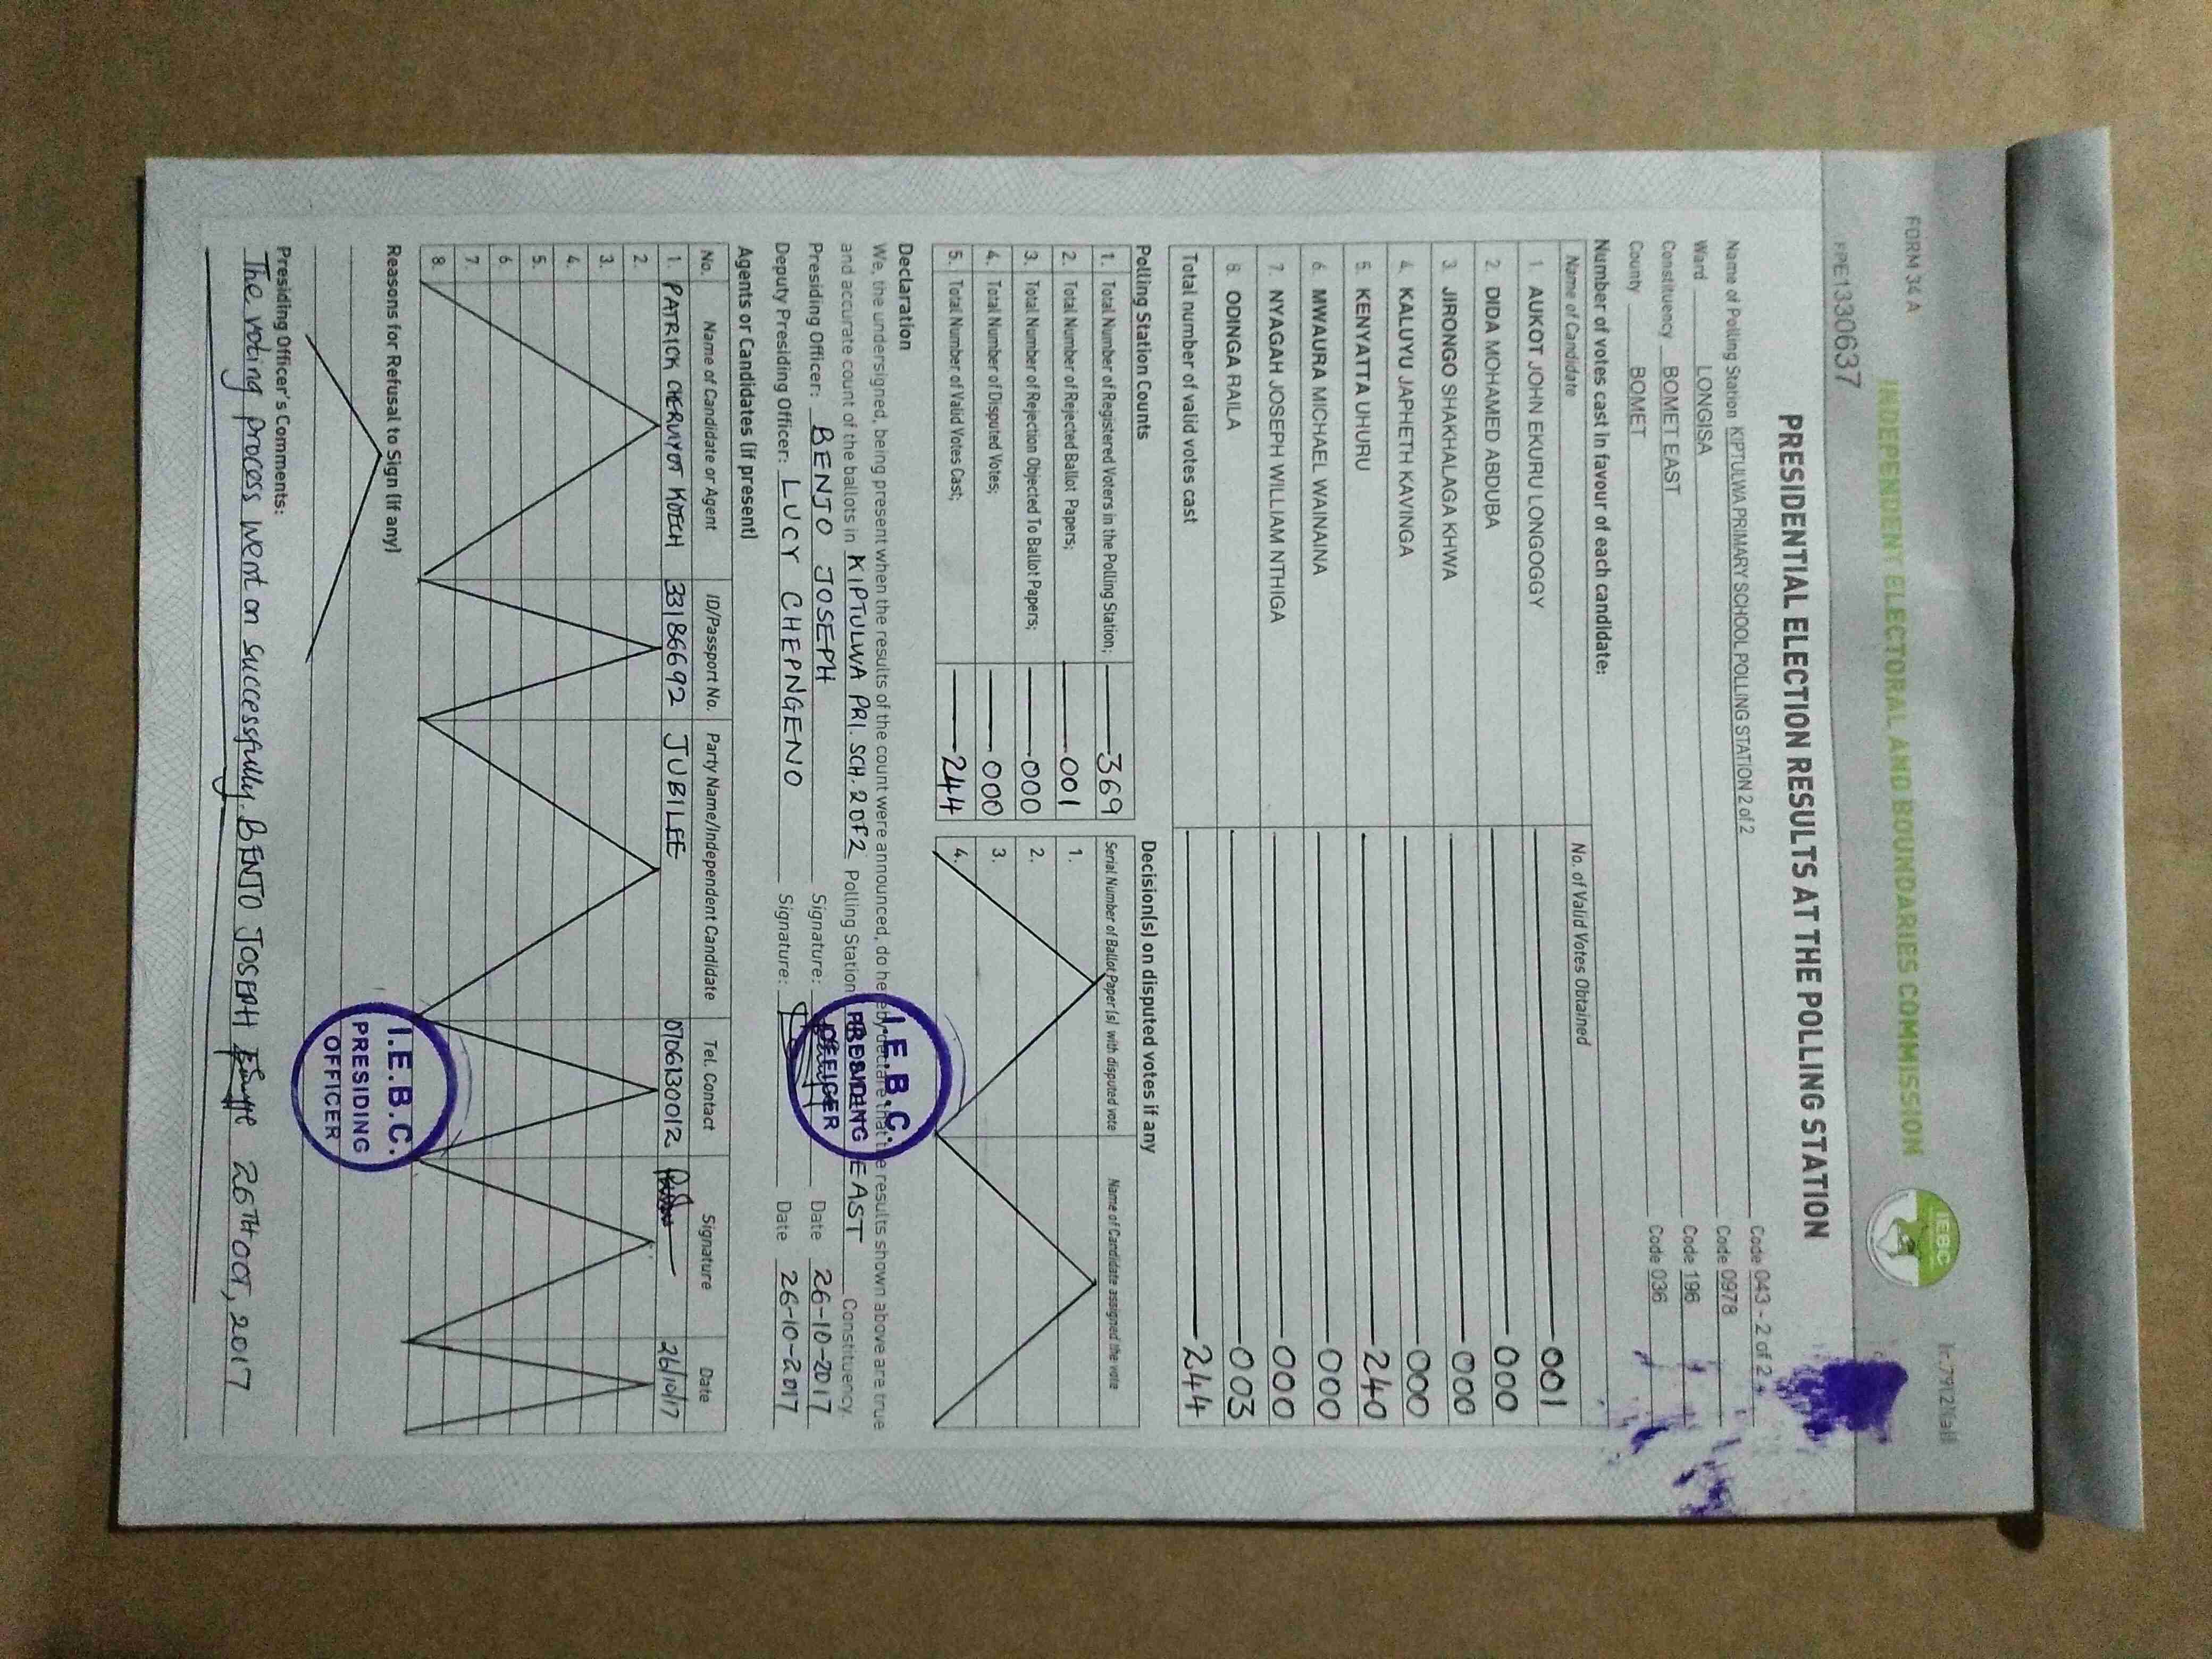 FORM 34 A
INDEPENDENT ELECTORAL AND BOUNDARIES COMMISSION
IEBC
PPE1330637
PRESIDENTIAL ELECTION RESULTS AT THE POLLING STATION
Name of Polling Station KIPTULWA PRIMARY SCHOOL POLLING STATION 2 of 2 Code 043 - 2 of 2
Ward LONGISA Code 0978
Constituency BOMET EAST Code 196
County BOMET Code 036
Number of votes cast in favour of each candidate:
Name of Candidate No. of Valid Votes Obtained
1. AUKOT JOHN EKURU LONGOGGY 001
2. DIDA MOHAMED ABDUBA 000
3. JIRONGO SHAKHALAGA KHWA 000
4. KALUYU JAPHETH KAVINGA 000
5. KENYATTA UHURU 240
6. MWAURA MICHAEL WAINAINA 000
7. NYAGAH JOSEPH WILLIAM NTHIGA 000
8. ODINGA RAILA 003
Total number of valid votes cast 244
Polling Station Counts
1. Total Number of Registered Voters in the Polling Station; 369
2. Total Number of Rejected Ballot Papers; 001
3. Total Number of Rejection Objected To Ballot Papers; 000
4. Total Number of Disputed Votes; 000
5. Total Number of Valid Votes Cast; 244
Decision(s) on disputed votes if any
Serial Number of Ballot Paper (s) with disputed vote Name of Candidate assigned the vote
1.
2.
3.
4.
Declaration
We, the undersigned, being present when the results of the count were announced, do hereby declare that the results shown above are true
and accurate count of the ballots in KIPTULWA PRI. SCH. 2 OF 2 Polling Station EAST Constituency.
Presiding Officer: BENJO JOSEPH Signature: Date 26-10-2017
Deputy Presiding Officer: LUCY CHEPNGENO Signature: Date 26-10-2017
I.E.B.C.
PRESIDING
OFFICER
Agents or Candidates (if present)
No. Name of Candidate or Agent ID/Passport No. Party Name/Independent Candidate Tel. Contact Signature Date
1. PATRICK CHERUIYOT KOECH 33186692 JUBILEE 0706130012 26/10/17
2.
3.
4.
5.
6.
7.
8.
I.E.B.C.
PRESIDING
OFFICER
Reasons for Refusal to Sign (if any)
Presiding Officer's Comments:
The voting process went on successfully. BENJO JOSEPH 26TH OCT, 2017